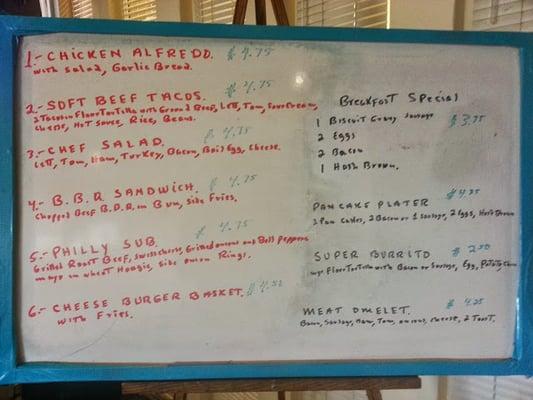 1- CHICKEN ALFREDO. $ 4.75
with Salad, Garlic Bread.
2- SOFT BEEF TACOS. $ 4.75
2 Tacos in Flour Tortilla with Ground Beef, Lett, Tom, Sour Cream,
Cheese, Hot Sauce, Rice, Beans.
3- CHEF SALAD. $ 4.75
Lett, Tom, Ham, Turkey, Bacon, Boil Egg, Cheese.
4- B.B.Q SANDWICH. $ 4.75
Chopped Beef B.B.Q. on Bun, Side Fries.
5- PHILLY SUB. $ 4.75
Grilled Roast Beef, Swiss cheese, Grilled onions and Bell Peppers
mayo in wheat Hoagie, side onion Rings.
6- CHEESE BURGER BASKET. $ 4.50
with Fries.
Breakfast Special
1 Biscuit Gravy Sausage $ 3.75
2 Eggs
2 Bacon
1 Hash Brown.
PANCAKE PLATER $ 4.25
2 Pan Cakes, 2 Bacon or 1 Sausage, 2 Eggs, Hash Brown
SUPER BURRITO $ 2.50
Flour Tortilla with Bacon or Sausage, Egg, Potato,
MEAT OMELET. $ 4.25
Bacon, Sausage, Ham, Tom, onions, cheese, 2 Toast.